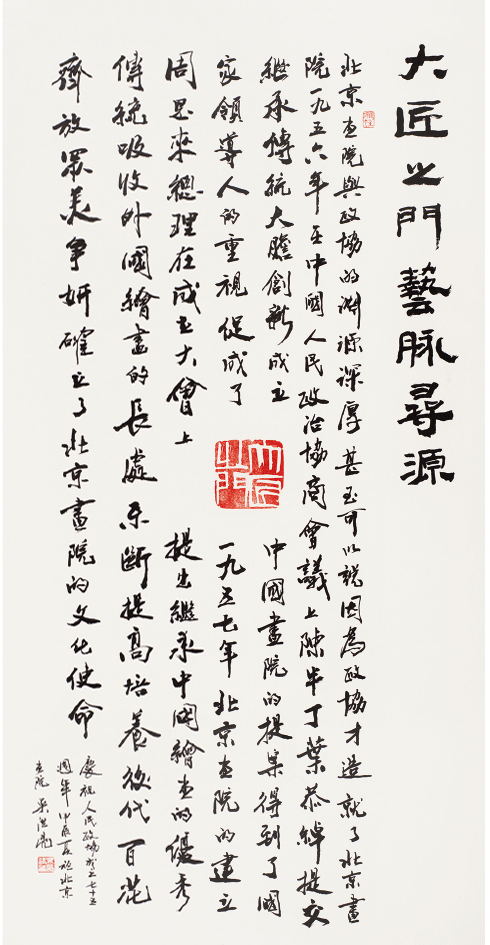 大匠之門藝脉尋源
北京畫院與政協的淵源深厚甚至可以說因為政協才造就了北京畫
院一九五六年在中國人民政治協商會議上陳半丁葉恭綽提交
繼承傳統大膽創新成立中國畫院的提案得到了國
家領導人的重視促成了一九五七年北京畫院的建立
周恩來總理在成立大會上提出繼承中國繪畫的優秀
傳統吸收外國繪畫的長處不斷提高培養後代百花
齊放眾美爭妍確立了北京畫院的文化使命
慶祝人民政協成立七十五
週年甲辰夏於北京
畫院吳洪亮
大匠之門